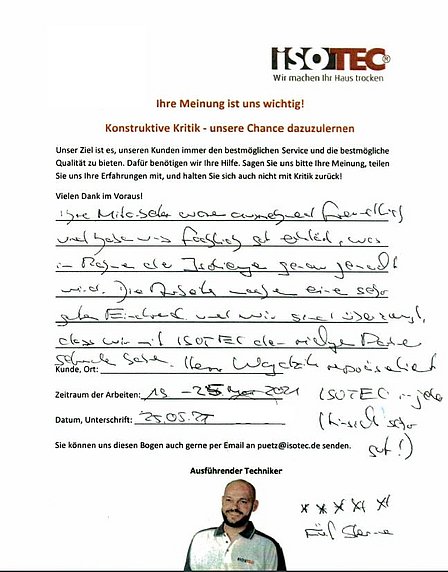 ISOTEC®
Wir machen Ihr Haus trocken
Ihre Meinung ist uns wichtig!
Konstruktive Kritik - unsere Chance dazuzulernen
Unser Ziel ist es, unseren Kunden immer den bestmöglichen Service und die bestmögliche
Qualität zu bieten. Dafür benötigen wir Ihre Hilfe. Sagen Sie uns bitte Ihre Meinung, teilen
Sie uns Ihre Erfahrungen mit, und halten Sie sich auch nicht mit Kritik zurück!
Vielen Dank im Voraus!
Ihre Mitarbeiter waren ausnehmend freundlich
und haben uns fachlich gut erklärt, was
im Rahmen der genau gemacht
wird. Die Arbeiten machen einen sehr
guten Eindruck und wir sind überzeugt,
dass wir mit ISOTEC den richtigen Partner
haben. Herr repräsentiert
Kunde, Ort:
Zeitraum der Arbeiten: 19 - 25 2021 ISOTEC in jeder
Hinsicht sehr
Datum, Unterschrift: 25.05.21
gut!)
Sie können uns diesen Bogen auch gerne per Email an puetz@isotec.de senden.
Ausführender Techniker
ISOTEC
Fünf Sterne